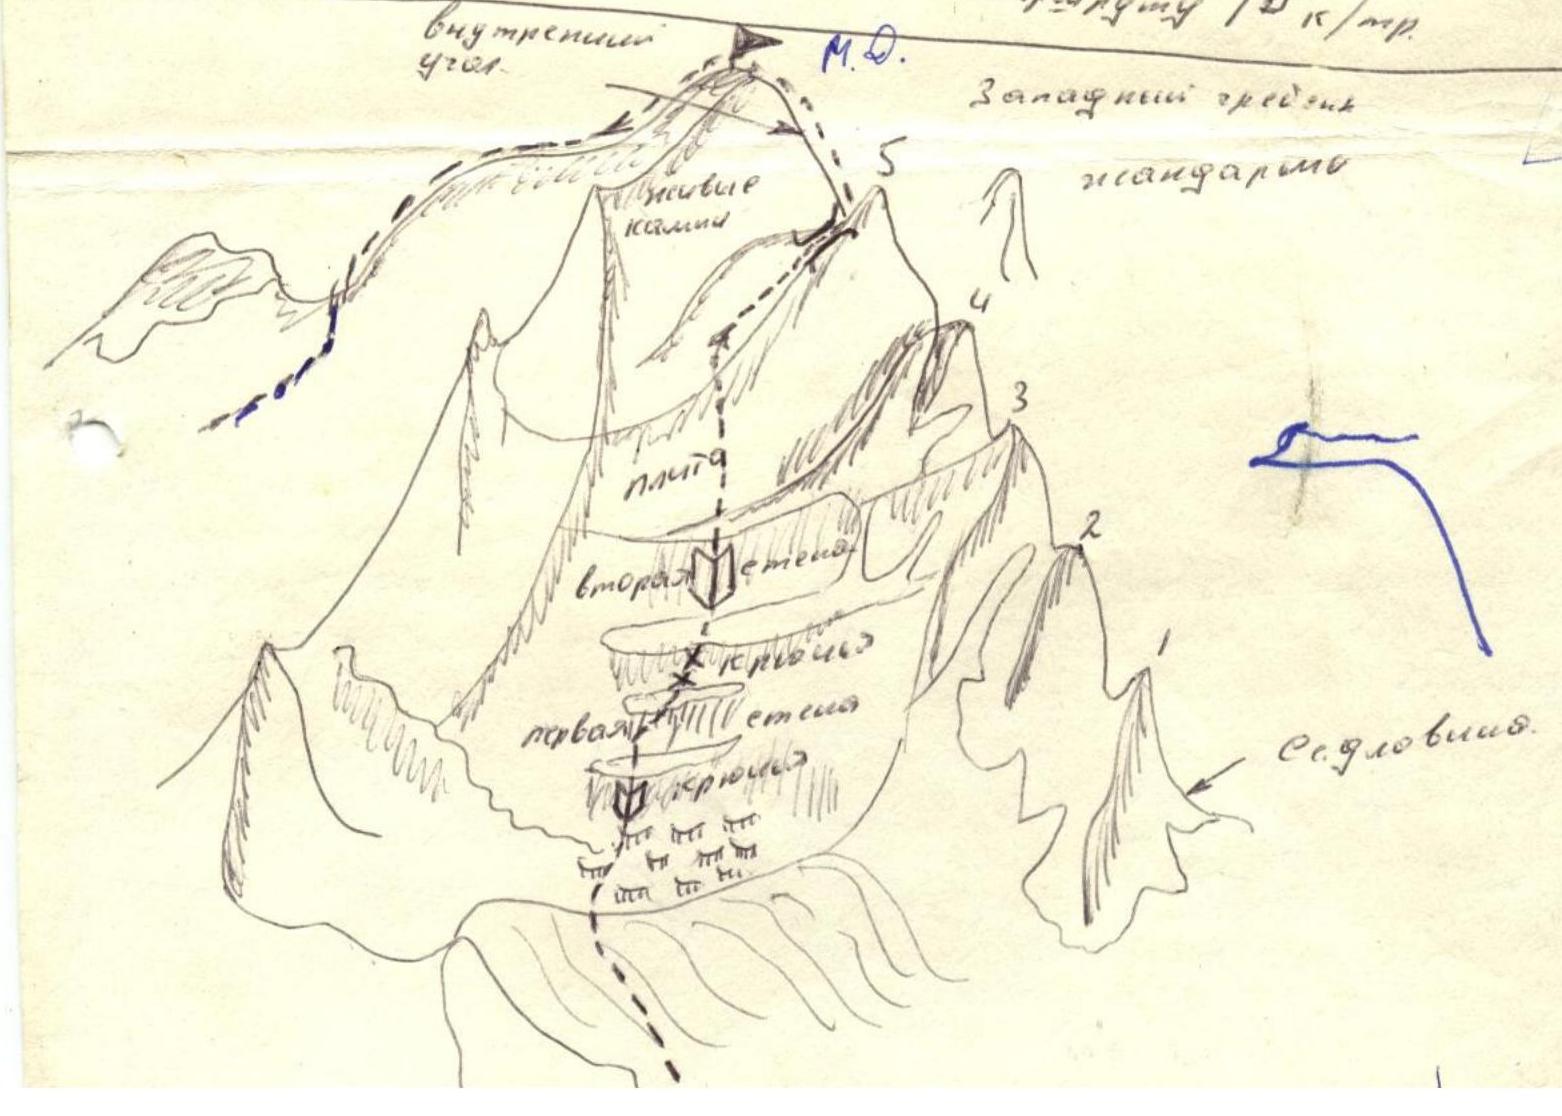 внутренний
угол.
к/тр.
М.Д.
Западный гребень
жандармы
5
живые
камни
4
3
плита
2
вторая стена
крючья
1
первая стена
Седловина.
крючья